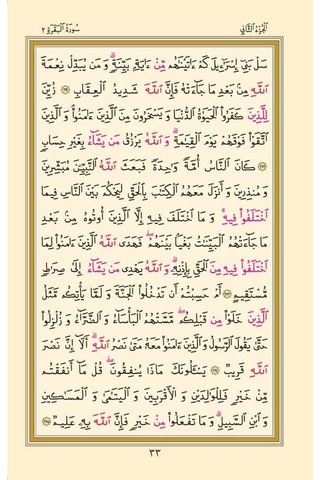 الجزء الثاني
سورة البقرة ٢
سَلْ بَنِي إِسْرَائِيلَ كَمْ آتَيْنَاهُمْ مِنْ آيَةٍ بَيِّنَةٍ وَمَنْ يُبَدِّلْ نِعْمَةَ
اللَّهِ مِنْ بَعْدِ مَا جَاءَتْهُ فَإِنَّ اللَّهَ شَدِيدُ الْعِقَابِ ٢١١ زُيِّنَ
لِلَّذِينَ كَفَرُوا الْحَيَاةُ الدُّنْيَا وَيَسْخَرُونَ مِنَ الَّذِينَ آمَنُوا وَالَّذِينَ
اتَّقَوْا فَوْقَهُمْ يَوْمَ الْقِيَامَةِ وَاللَّهُ يَرْزُقُ مَنْ يَشَاءُ بِغَيْرِ حِسَابٍ
٢١٢ كَانَ النَّاسُ أُمَّةً وَاحِدَةً فَبَعَثَ اللَّهُ النَّبِيِّينَ مُبَشِّرِينَ
وَمُنْذِرِينَ وَأَنْزَلَ مَعَهُمُ الْكِتَابَ بِالْحَقِّ لِيَحْكُمَ بَيْنَ النَّاسِ فِيمَا
اخْتَلَفُوا فِيهِ وَمَا اخْتَلَفَ فِيهِ إِلَّا الَّذِينَ أُوتُوهُ مِنْ بَعْدِ
مَا جَاءَتْهُمُ الْبَيِّنَاتُ بَغْيًا بَيْنَهُمْ فَهَدَى اللَّهُ الَّذِينَ آمَنُوا لِمَا
اخْتَلَفُوا فِيهِ مِنَ الْحَقِّ بِإِذْنِهِ وَاللَّهُ يَهْدِي مَنْ يَشَاءُ إِلَى صِرَاطٍ
مُسْتَقِيمٍ ٢١٣ أَمْ حَسِبْتُمْ أَنْ تَدْخُلُوا الْجَنَّةَ وَلَمَّا يَأْتِكُمْ مَثَلُ
الَّذِينَ خَلَوْا مِنْ قَبْلِكُمْ مَسَّتْهُمُ الْبَأْسَاءُ وَالضَّرَّاءُ وَزُلْزِلُوا
حَتَّى يَقُولَ الرَّسُولُ وَالَّذِينَ آمَنُوا مَعَهُ مَتَى نَصْرُ اللَّهِ أَلَا إِنَّ نَصْرَ
اللَّهِ قَرِيبٌ ٢١٤ يَسْأَلُونَكَ مَاذَا يُنْفِقُونَ قُلْ مَا أَنْفَقْتُمْ
مِنْ خَيْرٍ فَلِلْوَالِدَيْنِ وَالْأَقْرَبِينَ وَالْيَتَامَى وَالْمَسَاكِينِ
وَابْنِ السَّبِيلِ وَمَا تَفْعَلُوا مِنْ خَيْرٍ فَإِنَّ اللَّهَ بِهِ عَلِيمٌ ٢١٥
٣٣